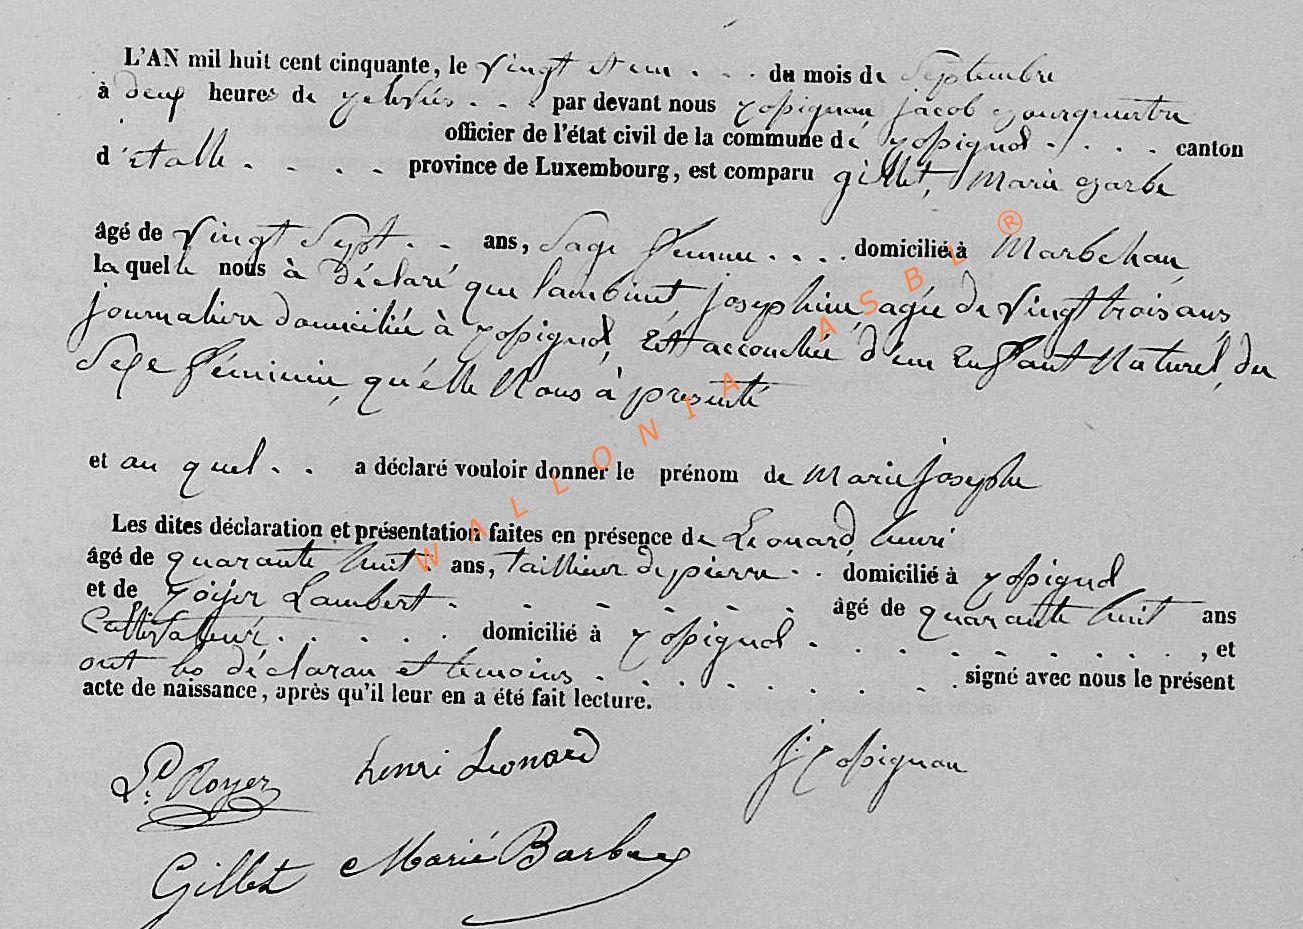 L'AN mil huit cent cinquante, le vingt et un . . . du mois de Septembre
à deux heures de relevés . . . par devant nous Rossignon jacob Bourguemtre
officier de l'état civil de la commune de Rossignol . . . . canton
d'étalle . . . . province de Luxembourg, est comparu gillet, Marie Barbe
âgé de vingt Sept . . ans, Sage femme . . . . domicilié à Marbehan,
la quelle nous à déclaré que lambinet, josephine, agée de vingt trois ans,
journaliere domiciliée à rossignol, Est accouchée d'un Enfant Naturel, du
Sexe féminin, qu'elle Nous à presenté
et au quel . . a déclaré vouloir donner le prénom de Marie josephe
Les dites déclaration et présentation faites en présence de Léonard, henri
âgé de quarante huit . ans, tailleur de pierre . . domicilié à rossignol
et de roijer Lambert . . . . . . . âgé de quarante huit ans
Cultivateur . . . . . domicilié à rossignol . . . . . . . . . . , et
ont les déclaran et temoins . . . . . . . . . signé avec nous le présent
acte de naissance, après qu'il leur en a été fait lecture.
Royer henri Leonard J: rossignon
Gillet Marié Barbe
WALLONIA ASBL ®